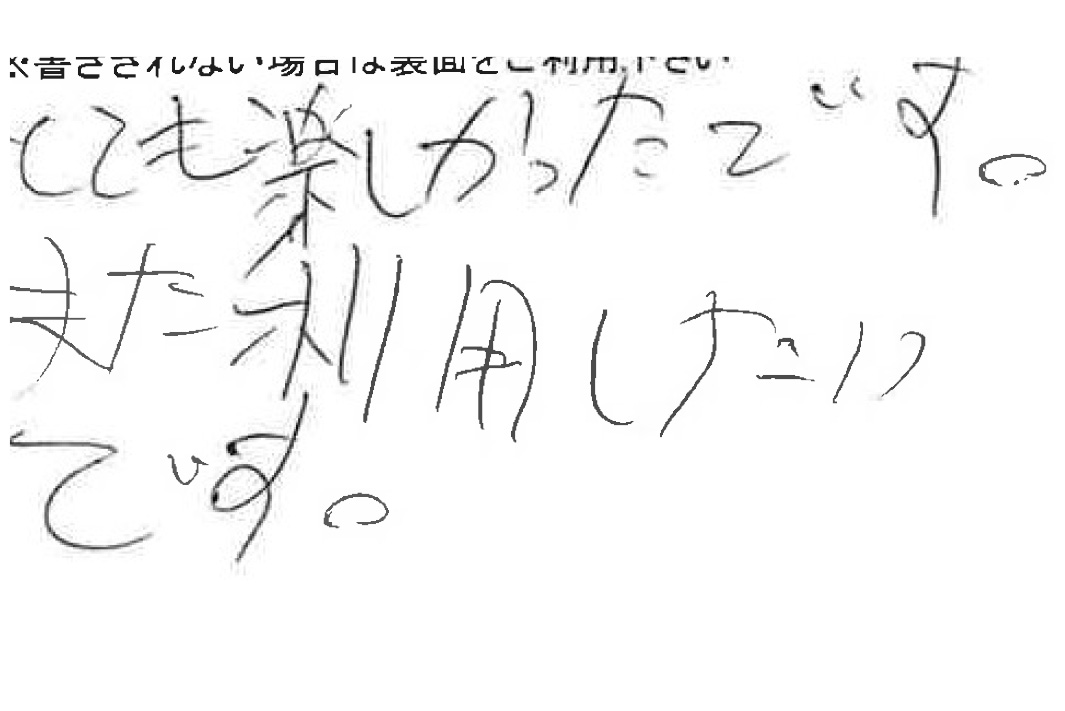 ※書ききれない場合は裏面をご利用下さい
とても楽しかったです。
また利用したい
です。